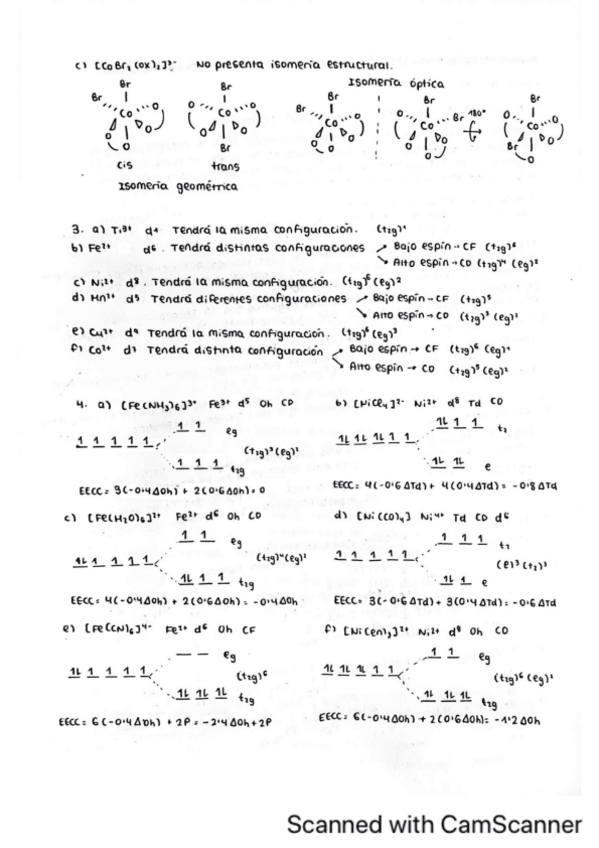 c) [CoBr₂(ox)₂]³⁻ No presenta isomería estructural.
Isomería óptica
Br Br Br Br Br
Br Co O O Co O Br Co O O Co Br 180° O Co O
cis trans
Isomería geométrica
3. a) Ti³⁺ d¹ Tendrá la misma configuración. (t2g)¹
b) Fe²⁺ d⁶. Tendrá distintas configuraciones Bajo espín - CF (t2g)⁶
Alto espín - CD (t2g)⁴ (eg)²
c) Ni²⁺ d⁸. Tendrá la misma configuración. (t2g)⁶(eg)²
d) Mn²⁺ d⁵ Tendrá diferentes configuraciones Bajo espín - CF (t2g)⁵
Alto espín - CD (t2g)³ (eg)²
e) Cu²⁺ d⁹ Tendrá la misma configuración. (t2g)⁶(eg)³
f) Co²⁺ d⁷ Tendrá distinta configuración Bajo espín → CF (t2g)⁶ (eg)¹
Alto espín → CD (t2g)⁵ (eg)²
4. a) [Fe(NH₃)₆]³⁺ Fe³⁺ d⁵ Oh CD
eg
(t2g)³(eg)²
t2g
EECC = 3(-0'4Δoh) + 2(0'6Δoh) = 0
b) [NiCl₄]²⁻ Ni²⁺ d⁸ Td CD
t₂
e
EECC = 4(-0'6ΔTd) + 4(0'4ΔTd) = -0'8ΔTd
c) [Fe(H₂O)₆]²⁺ Fe²⁺ d⁶ Oh CD
eg
(t2g)⁴(eg)²
t2g
EECC = 4(-0'4Δoh) + 2(0'6Δoh) = -0'4Δoh
d) [Ni(CO)₄] Ni⁴⁺ Td CD d⁶
t₂
(e)³(t₂)³
e
EECC = 3(-0'6ΔTd) + 3(0'4ΔTd) = -0'6ΔTd
e) [Fe(CN)₆]⁴⁻ Fe²⁺ d⁶ Oh CF
eg
(t2g)⁶
t2g
EECC = 6(-0'4Δoh) + 2P = -2'4Δoh + 2P
f) [Ni(en)₃]²⁺ Ni²⁺ d⁸ Oh CD
eg
(t2g)⁶(eg)²
t2g
EECC = 6(-0'4Δoh) + 2(0'6Δoh) = -1'2Δoh
Scanned with CamScanner